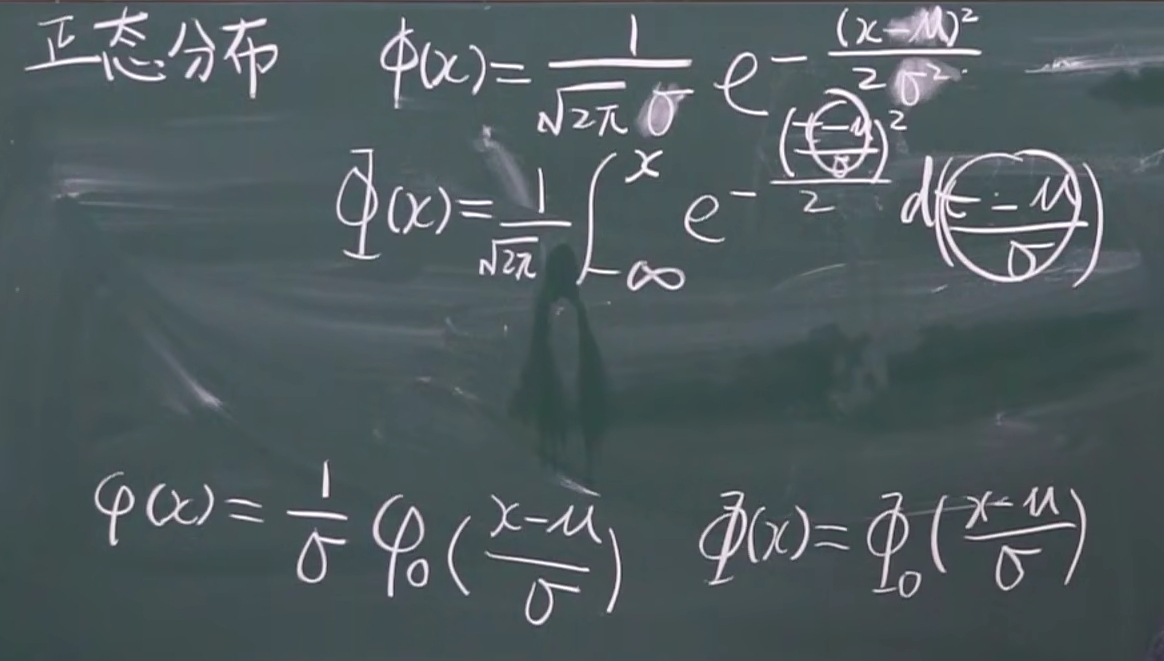 正态分布 ϕ(x) = 1/(√2π σ) e^(-(x-μ)²/(2σ²))
Φ(x) = 1/√2π ∫_{-∞}^{x} e^(-((t-μ)/σ)²/2) d((t-μ)/σ)
φ(x) = 1/σ φ₀((x-μ)/σ) Φ(x) = Φ₀((x-μ)/σ)